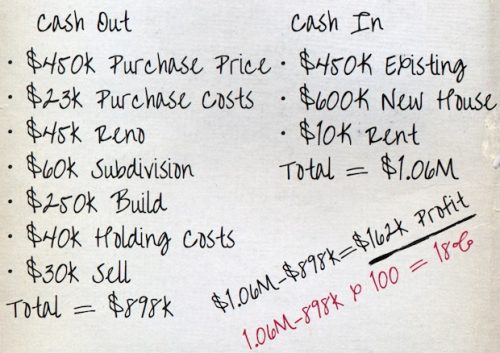 Cash Out
· $450k Purchase Price
· $23k Purchase Costs
· $45k Reno
· $60k Subdivision
· $250k Build
· $40k Holding Costs
· $30k Sell
Total = $898k
Cash In
· $450K Existing
· $600K New House
· $10K Rent
Total = $1.06M
$1.06M-$898k=$162k Profit
1.06M-898k x 100 = 18%